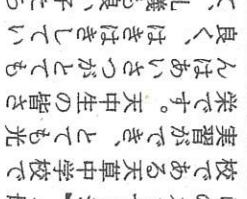 校である天草中学校で
実習ができ、とても光
栄です。天中生の皆さ
んはあいさつがとても
良く、はきはきしてい
て、礼儀も良い子たち